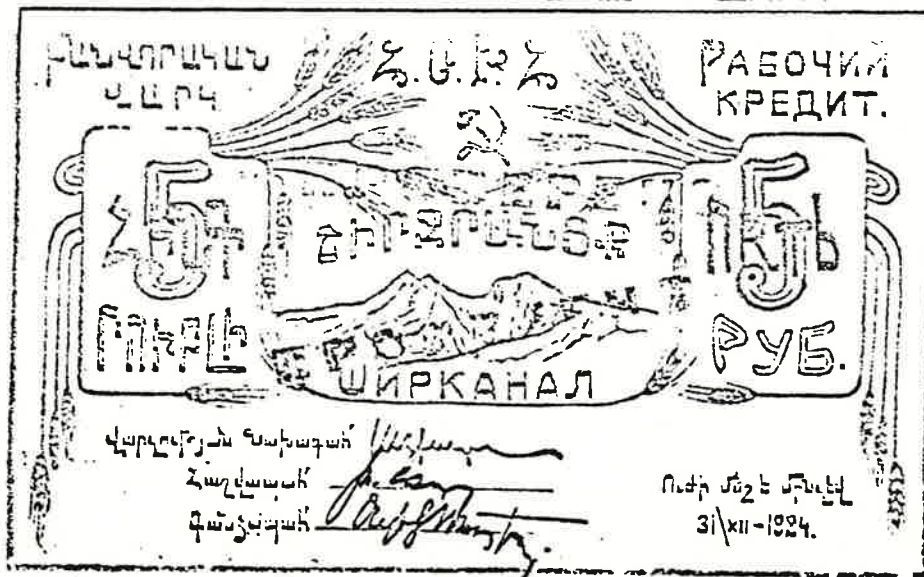 ԲԱՆՎՈՐԱԿԱՆ
ՎԱՐԿ
Հ.Ս.Խ.Հ
РАБОЧИЙ
КРЕДИТ.
ՀԻՆԳ
5
ՌՈՒԲԼԻ
ՇԻՐՋՐԱՆՑՔ
ШИРКАНАЛ
ПЯТЬ
5
РУБ.
Վարչության Նախագահ
Հաշվապահ
Գանձապահ
Ուժի մեջ է մինչև
31\XII-1924.